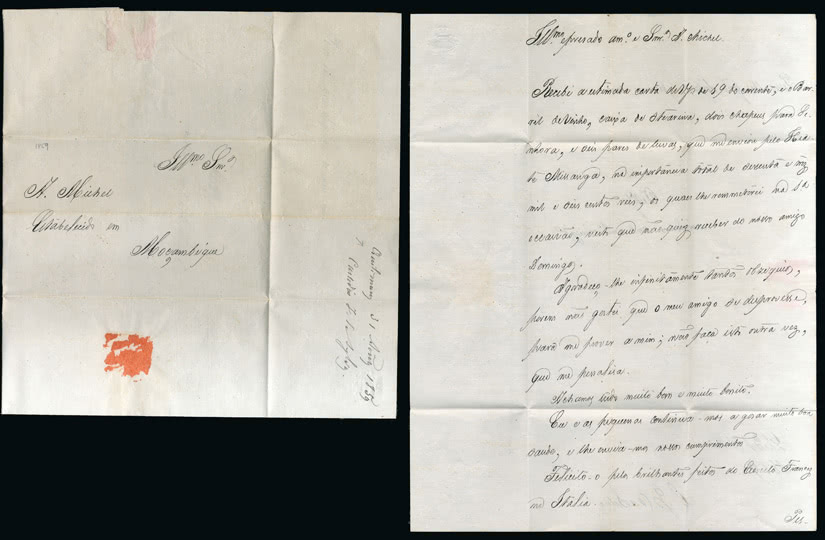 1859
Illmo Snr.
A. Michel
Estabelecido em
Moçambique
Illmo e presado amo. e Snr. A. Michel.
Recebi a estimada carta de V. de 19 do corrente, e o Bar-
ril de Vinho, caixa de Stearina, dois chapeus para Se-
nhora, e seis pares de luvas, que me enviou pelo Hia-
te Mossanga, na importancia total de
mil e seis centos reis, os quaes lhe remmeterei na 1a
occasião, visto que não quiz receber do nosso amigo
Domingos.
Agradeço-lhe infinitamente tantos obsequios,
porem não gostei que o meu amigo se desprovesse,
para me prover a mim; não faça isto outra vez,
que me penalisa.
Achamos tudo muito bom e muito bonito.
Eu e as pequenas continua-mos a gosar muito boa
saude, e lhe envia-mos nossos cumprimentos
Felicito-o pelos brilhantes feitos do Exercito Francez
na Italia.